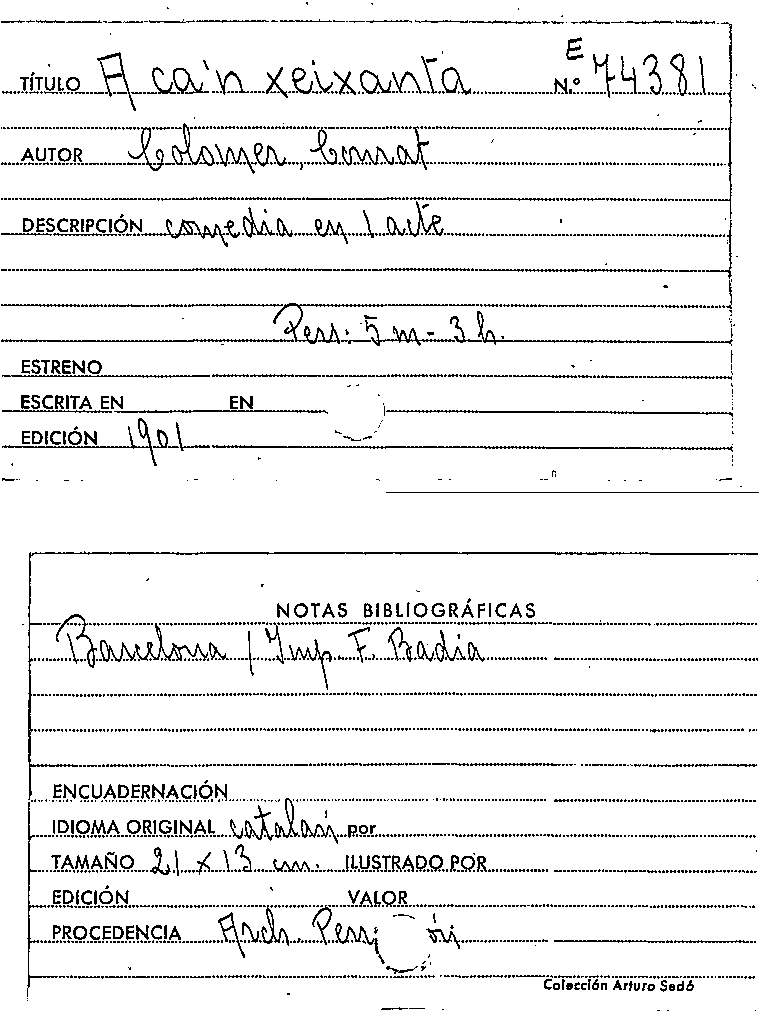 TÍTULO A ca'n xeixanta E N.º 74381
AUTOR Colomer, Conrat
DESCRIPCIÓN comedia en 1 acte
Pers: 5 m - 3 h.
ESTRENO
ESCRITA EN EN
EDICIÓN 1901
NOTAS BIBLIOGRÁFICAS
Barcelona / Imp. F. Badia
ENCUADERNACIÓN
IDIOMA ORIGINAL catalan por
TAMAÑO 21 x 13 cm. ILUSTRADO POR
EDICIÓN VALOR
PROCEDENCIA Arch.
Colección Arturo Sedó